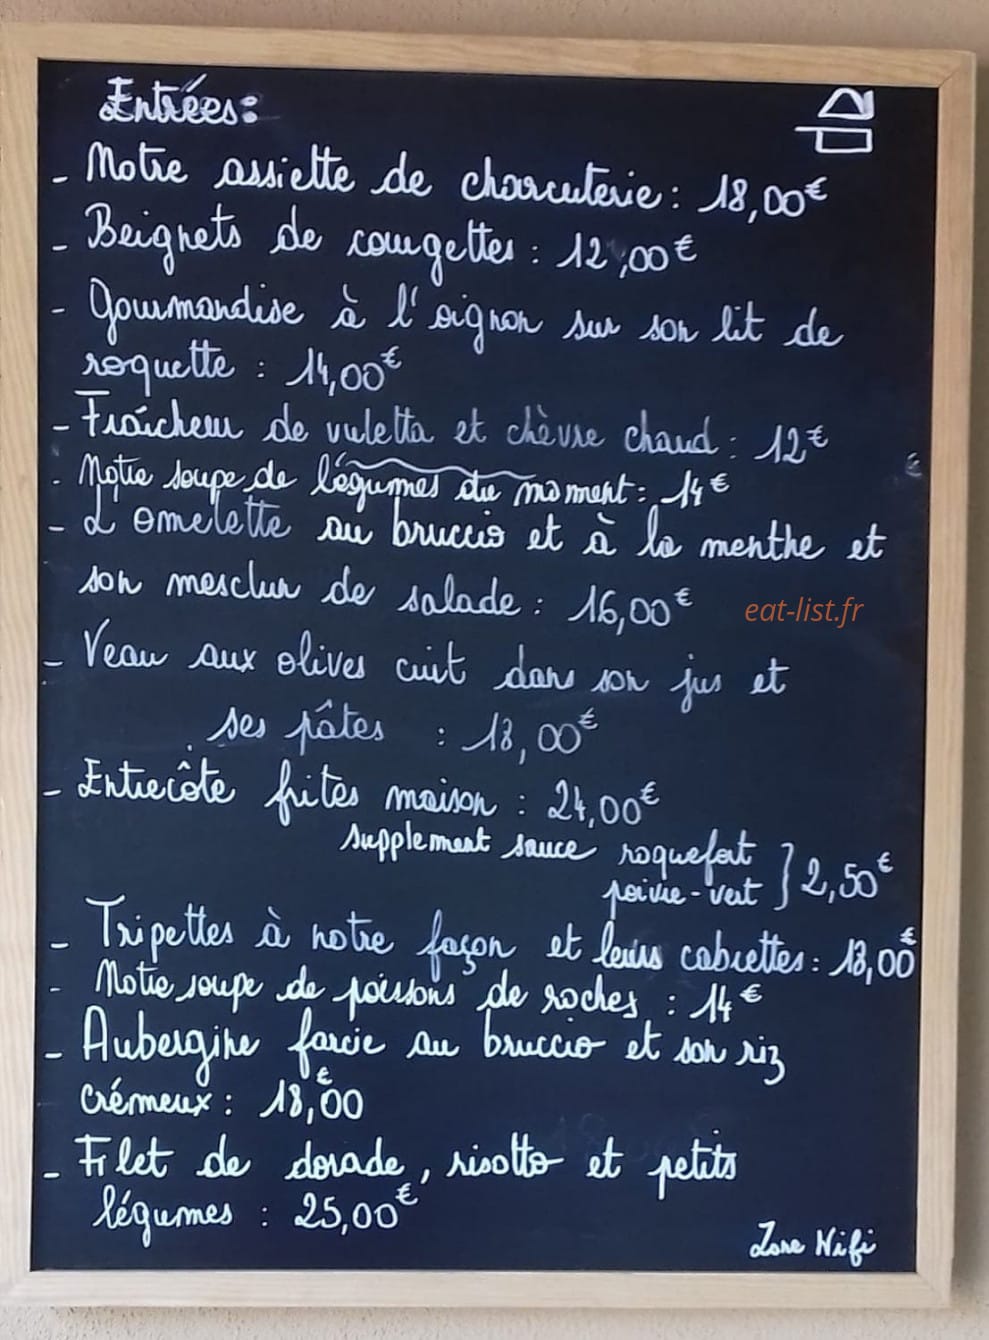 Entrées:
- Notre assiette de charcuterie : 18,00€
- Beignets de courgettes : 12,00€
- Gourmandise à l'oignon sur son lit de
roquette : 14,00€
- Fraîcheur de vuletta et chèvre chaud : 12€
€
- Notre soupe de légumes du moment : 14€
- L'omelette au bruccio et à la menthe et
son mesclun de salade : 16,00€
eat-list.fr
- Veau aux olives cuit dans son jus et
ses pâtes : 18,00€
- Entrecôte frites maison : 24,00€
supplement sauce roquefort } 2,50€
poivre-vert
- Tripettes à notre façon et leurs cabrettes : 18,00€
- Notre soupe de poissons de roches : 14€
- Aubergine farcie au bruccio et son riz
crémeux : 18,00€
- Filet de dorade, risotto et petits
légumes : 25,00€
Zone Wifi